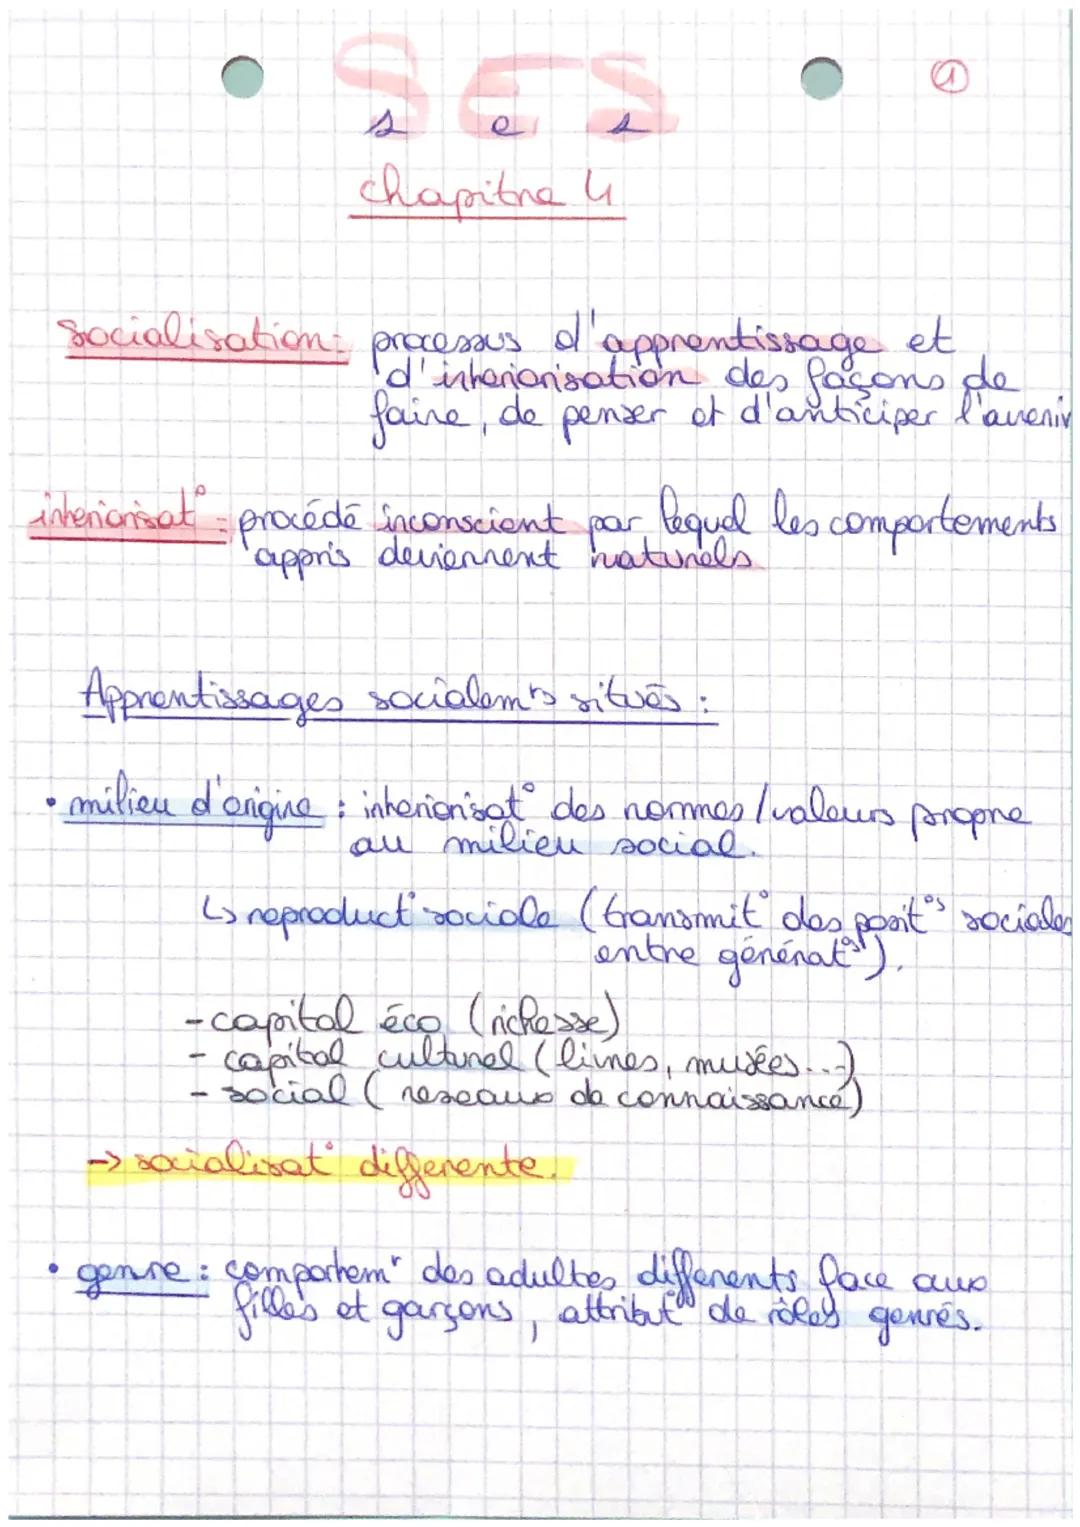 SES
s e s
①
chapitre 4
socialisation: processus d'apprentissage et
d'interiorisation des façons de
faire, de penser et d'anticiper l'avenir
interiorisat° : procédé inconscient par lequel les comportements
appris deviennent naturels
Apprentissages socialemts situés :
• milieu d'origine : interiorisat° des normes/valeurs propre
au milieu social.
↳ reproduct° sociale (transmit° des posit°s sociales
entre générat°s).
- capital éco (richesse)
- capital culturel (livres, musées...)
- social (reseaux de connaissance)
-> socialisat° differente.
• genre : comportemt des adultes differents face aux
filles et garçons, attribut° de rôles genrés.